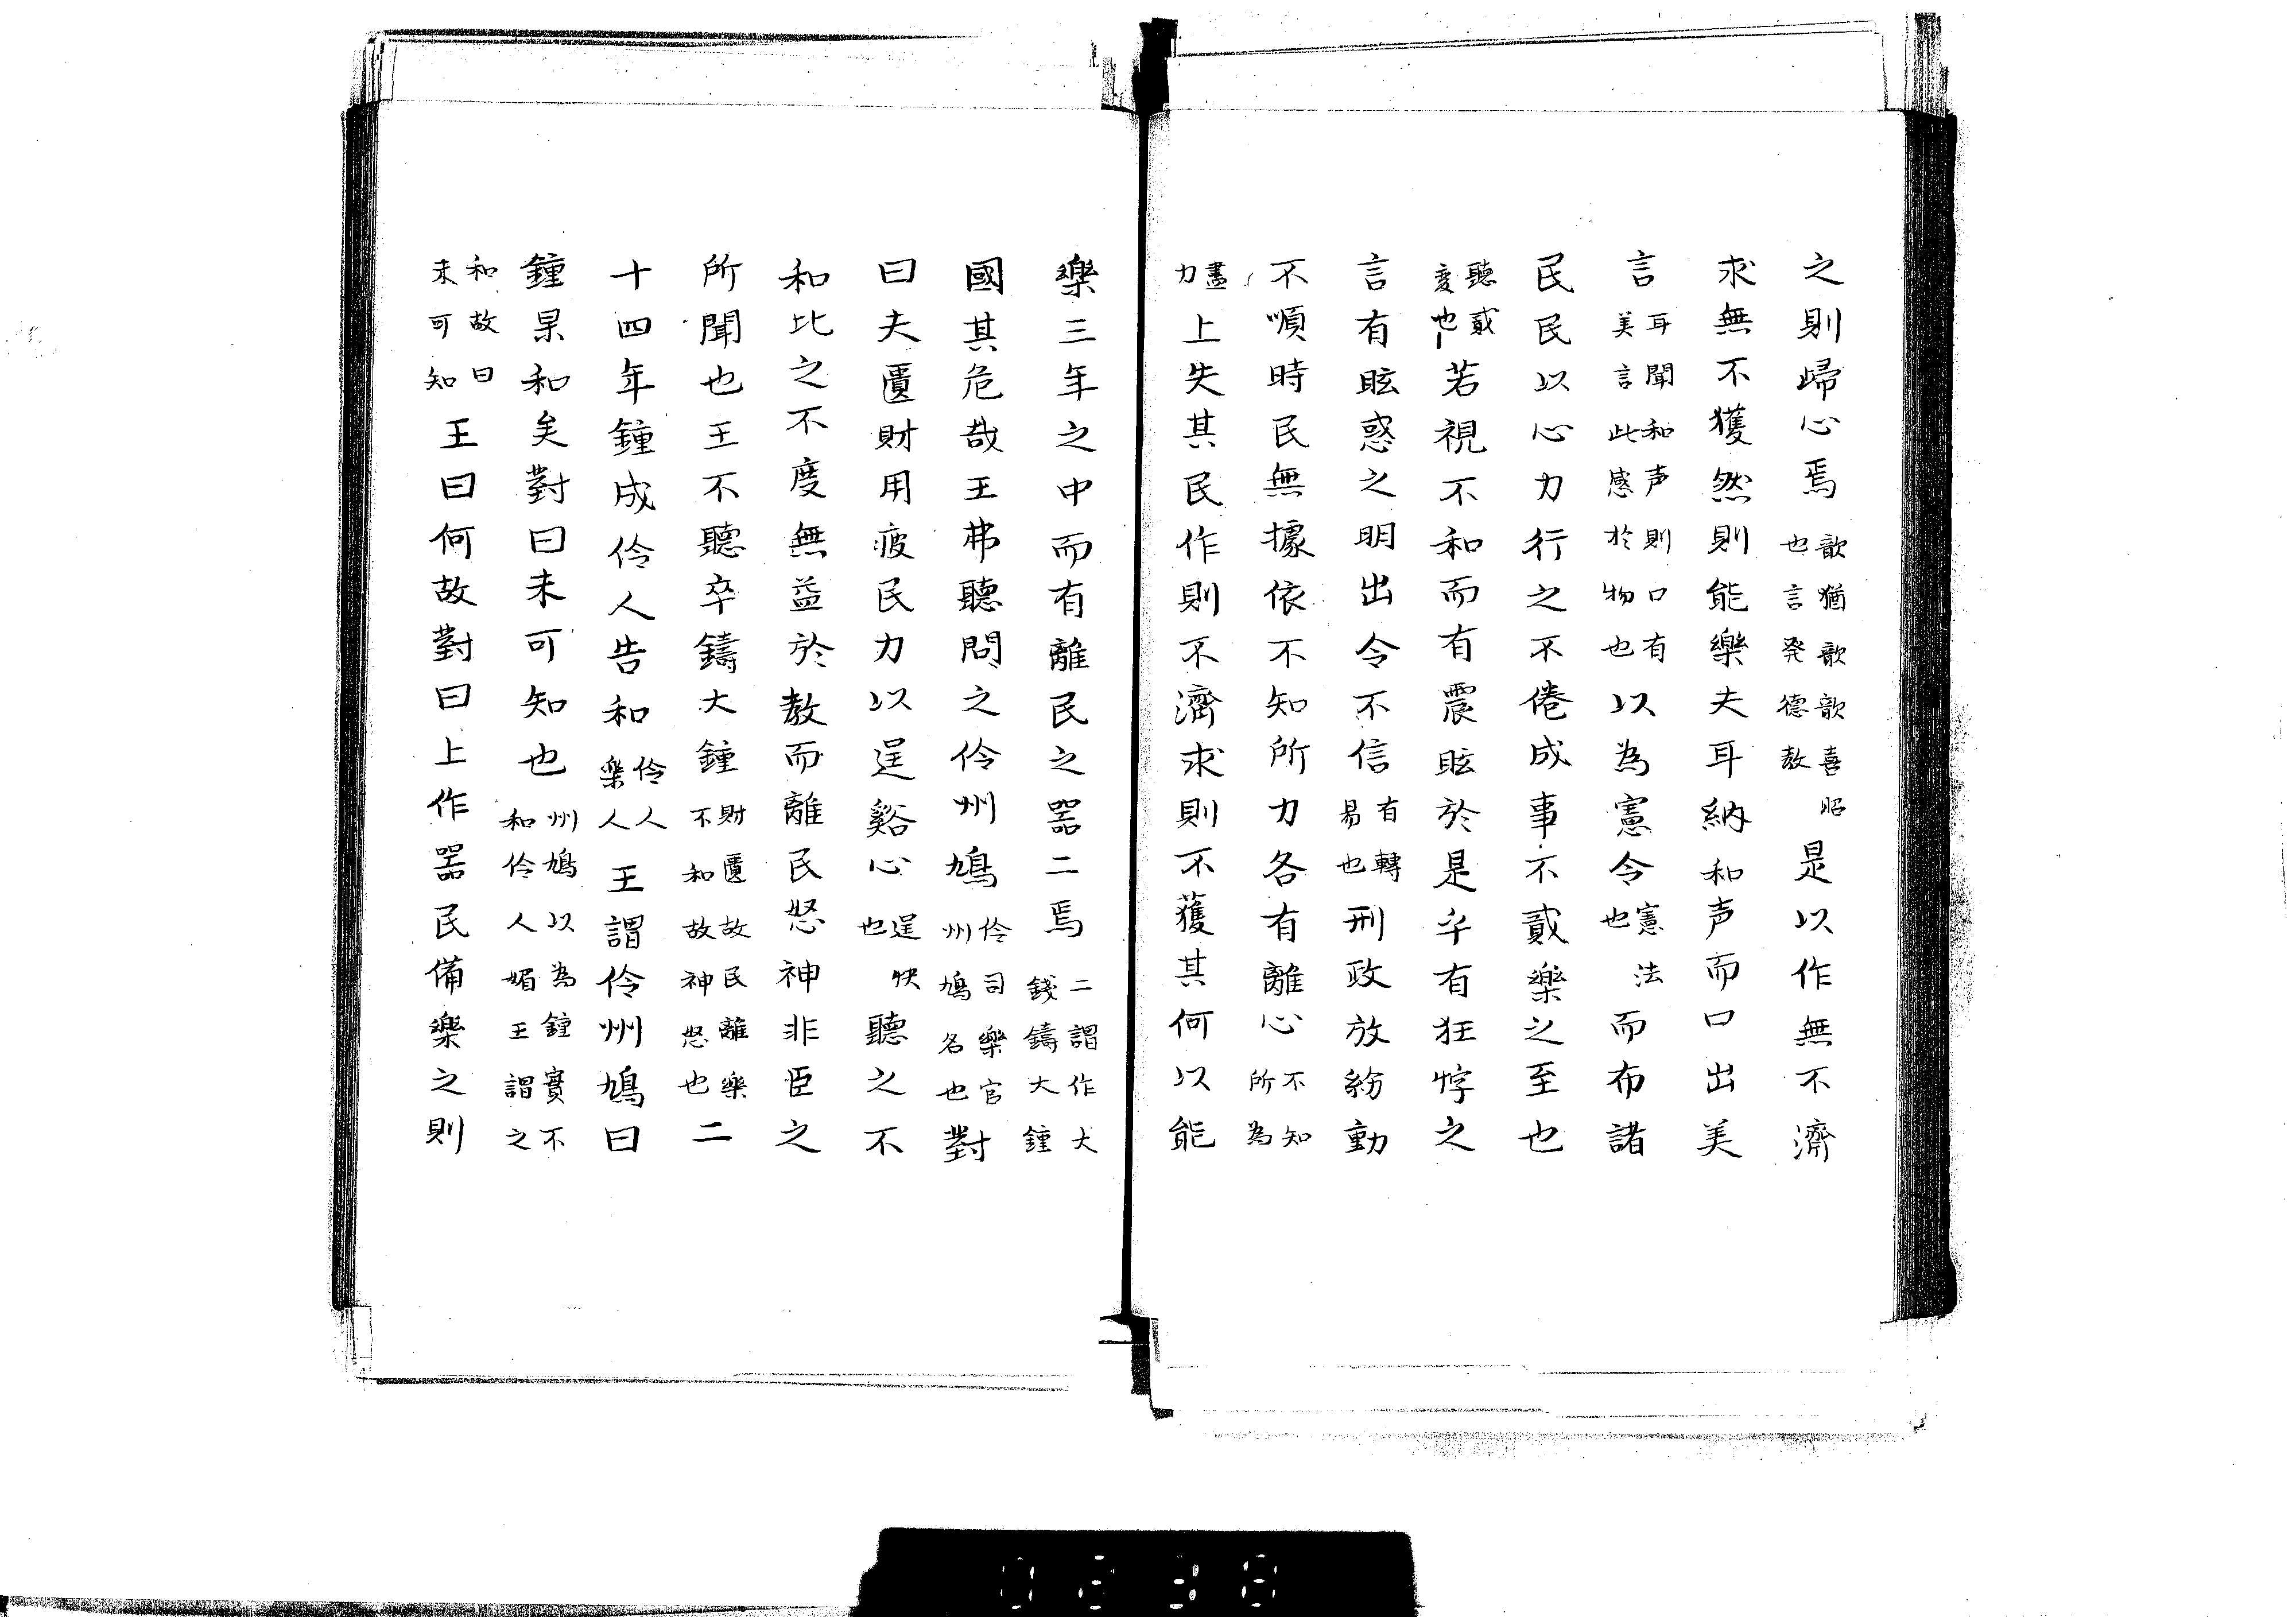 之則歸心焉歆猶歆歆喜昭也言発德教是以作無不濟
求無不獲然則能樂夫耳納和声而口出美
言耳聞和声則口有美言此感於物也以為憲令憲法也而布諸
民民以心力行之不倦成事不貳樂之至也
聽貳変也若視不和而有震眩於是乎有狂悖之
言有眩惑之明出令不信有轉易也刑政放紛動
不順時民無據依不知所力各有離心不知所為
盡力上失其民作則不濟求則不獲其何以能
樂三年之中而有離民之器二焉二謂作大錢鑄大鐘
國其危哉王弗聽問之伶州鳩伶司樂官州鳩名也對
曰夫匱財用疲民力以逞谿心逞快也聽之不
和比之不度無益於教而離民怒神非臣之
所聞也王不聽卒鑄大鐘財匱故民離樂不和故神怒也二
十四年鐘成伶人告和伶人樂人王謂伶州鳩曰
鐘果和矣對曰未可知也州鳩以為鐘實不和伶人媚王謂之
和故曰未可知王曰何故對曰上作器民備樂之則